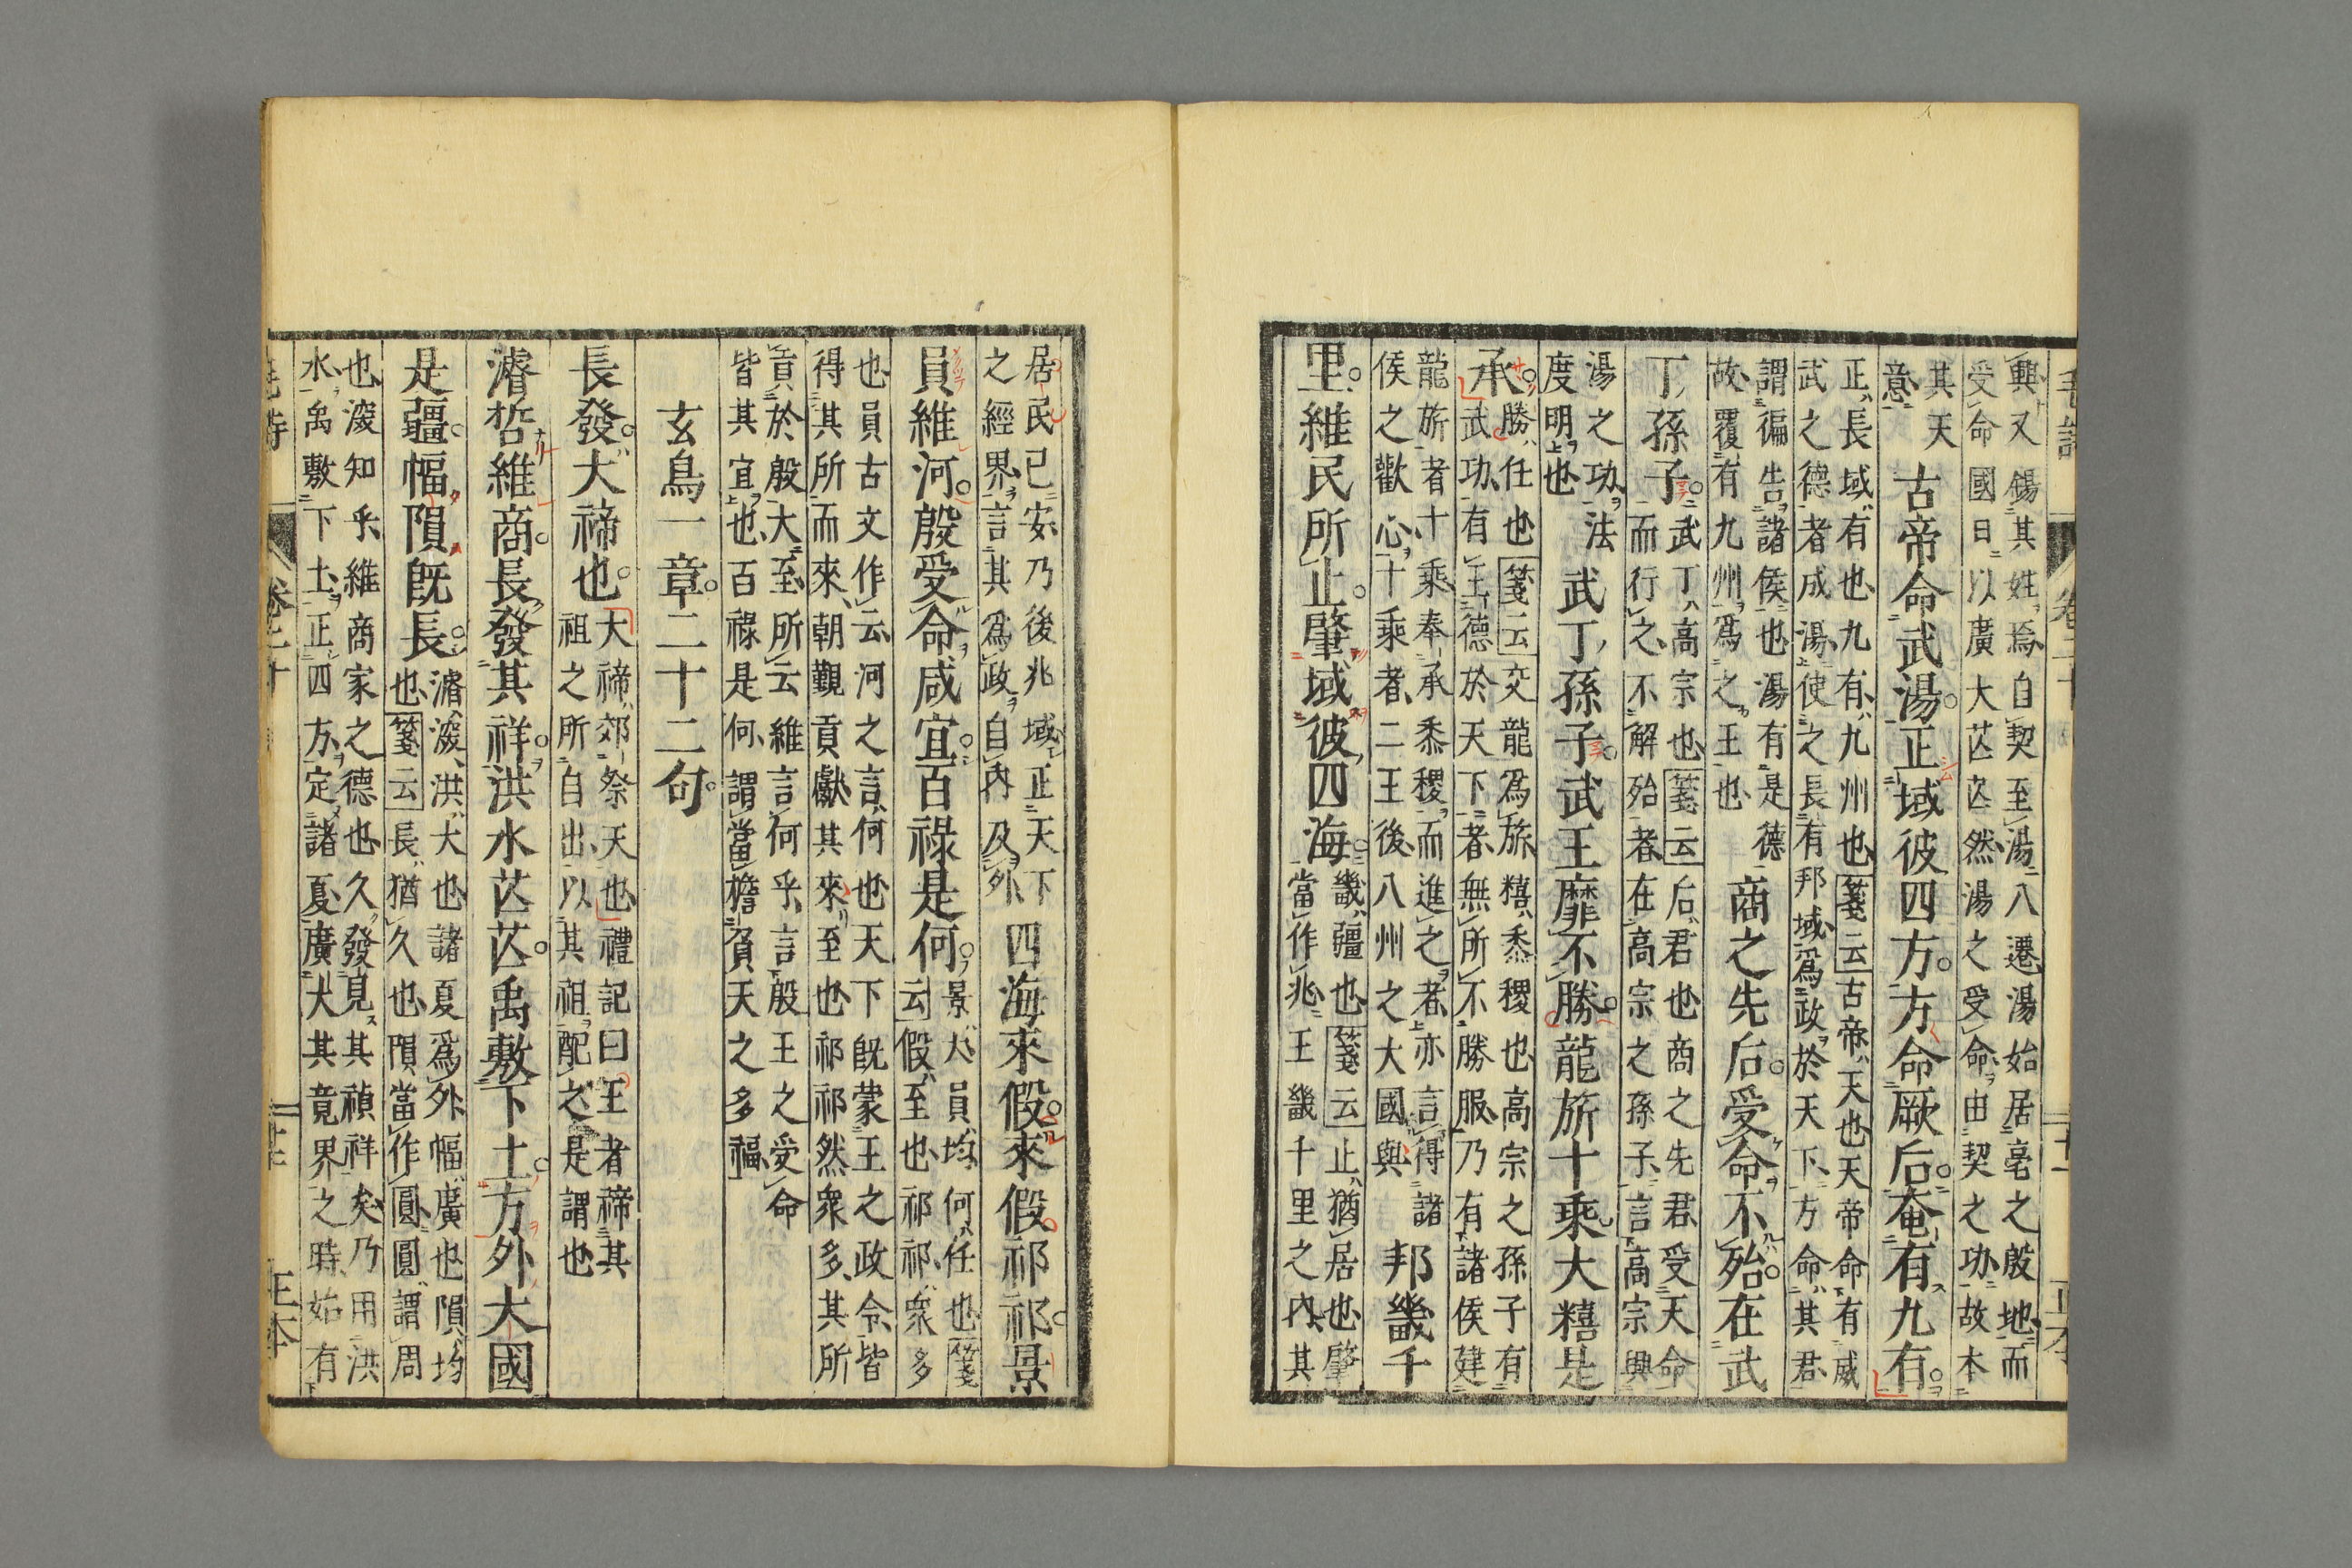 毛詩 卷二十 二十一 正本
興又錫其姓焉自契至湯八遷湯始居亳之殷地而
受命國日以廣大芒芒然湯之受命由契之功故本
其天
意
古帝命武湯正域彼四方方命厥后奄有九有
正長域有也九有九州也箋云古帝天也天帝命有威
武之德者成湯使之長有邦域爲政於天下方命其君
謂徧告諸侯也湯有是德
故覆有九州爲之王也
商之先后受命不殆在武
丁孫子
武丁高宗也箋云后君也商之先君受天命
而行之不解殆者在高宗之孫子言高宗興
湯之功法
度明也
武丁孫子武王靡不勝龍旂十乘大糦是
承
勝任也箋云交龍爲旂糦黍稷也高宗之孫子有
武功有王德於天下者無所不勝服乃有諸侯建
龍旂者十乘奉承黍稷而進之者亦言得諸
侯之歡心十乘者二王後八州之大國與
邦畿千
里維民所止肇域彼四海
畿疆也箋云止猶居也肇
當作兆王畿千里之內其
居民已安乃後兆域正天下
之經界言其爲政自內及外
四海來假來假祁祁景
員維河殷受命咸宜百祿是何
景大員均何任也箋
云假至也祁祁衆多
也員古文作云河之言何也天下既蒙王之政令皆
得其所而來朝覲貢獻其來至也祁祁然衆多其所
貢於殷大至所云維言何乎言殷王之受命
皆其宜也百祿是何謂當擔負天之多福
玄鳥一章二十二句
長發大禘也
大禘郊祭天也禮記曰王者禘其
祖之所自出以其祖配之是謂也
濬哲維商長發其祥洪水芒芒禹敷下土方外大國
是疆幅隕既長
濬深洪大也諸夏爲外幅廣也隕均
也箋云長猶久也隕當作圓圓謂周
也深知乎維商家之德也久發見其禎祥矣乃用洪
水禹敷下土正四方定諸夏廣大其竟界之時始有
毛詩 卷二十 二十二 正本